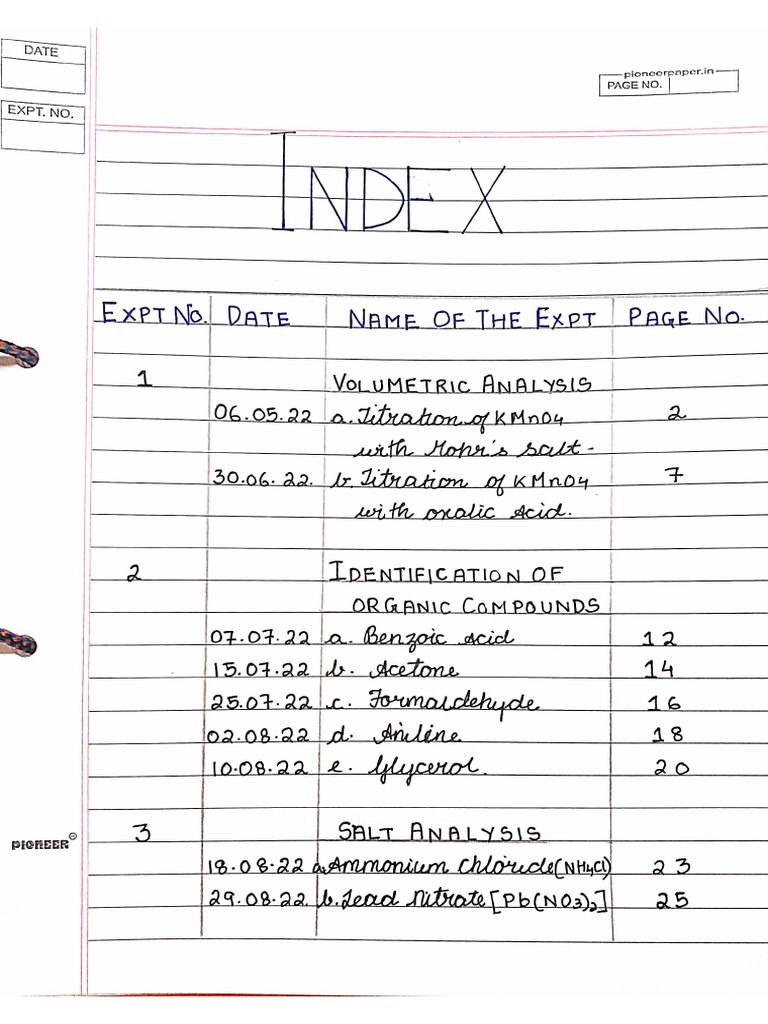 DATE
pioneerpaper.in
PAGE NO.
EXPT. NO.
INDEX
EXPT NO. DATE NAME OF THE EXPT PAGE NO.
1 VOLUMETRIC ANALYSIS
06.05.22 a. Titration of KMnO4 2
with Mohr's salt-
30.06.22. b. Titration of KMnO4 7
with oxalic Acid.
2 IDENTIFICATION OF
ORGANIC COMPOUNDS
07.07.22 a. Benzoic Acid 12
15.07.22 b. Acetone 14
25.07.22 c. Formaldehyde 16
02.08.22 d. Aniline 18
10.08.22 e. Glycerol. 20
3 SALT ANALYSIS
PIONEER
18.08.22 a. Ammonium Chloride (NH4Cl) 23
29.08.22. b. Lead Nitrate [Pb(NO3)2] 25